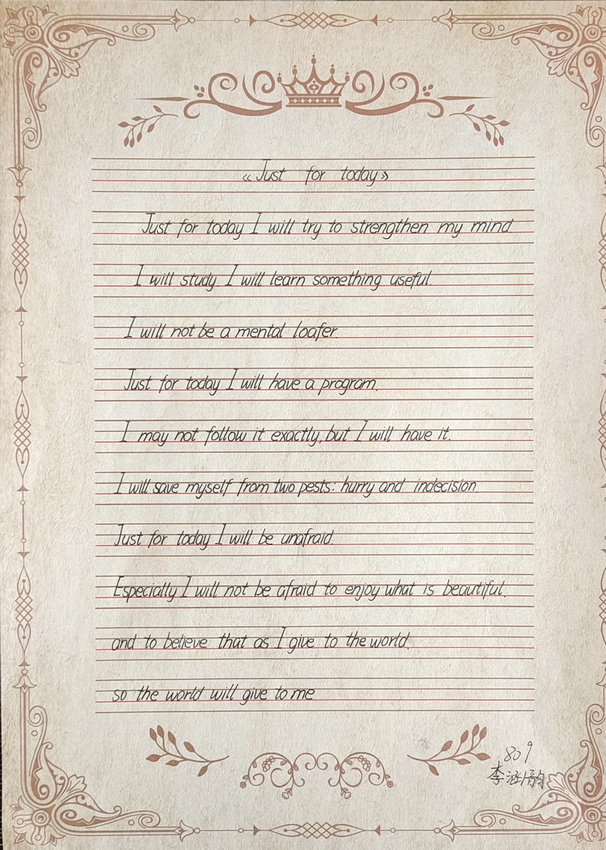 《Just for today》
Just for today I will try to strengthen my mind.
I will study I will learn something useful.
I will not be a mental loafer.
Just for today I will have a program.
I may not follow it exactly, but I will have it.
I will save myself from two pests: hurry and indecision.
Just for today I will be unafraid
Especially I will not be afraid to enjoy what is beautiful.
and to believe that as I give to the world.
so the world will give to me
809
李涵韵